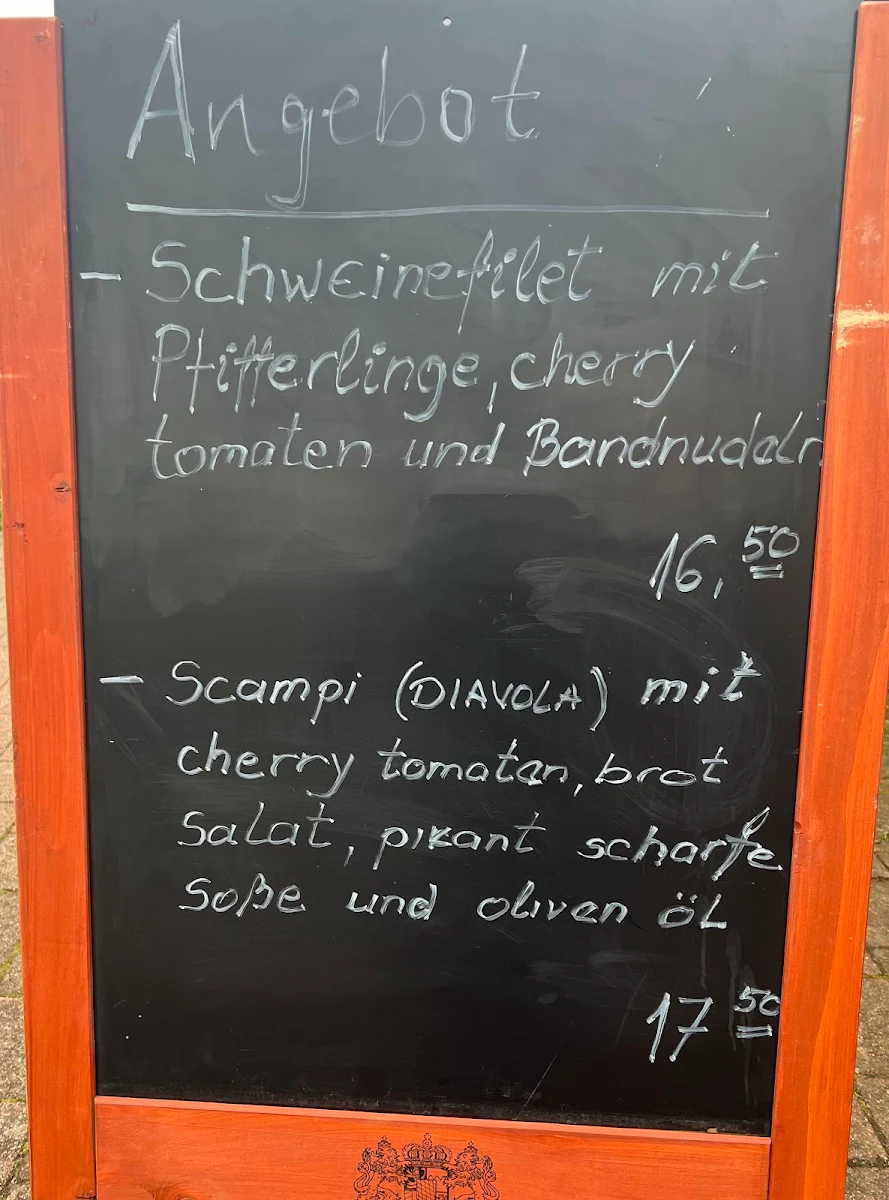 Angebot
- Schweinefilet mit
Pfifferlinge, cherry
tomaten und Bandnudeln
16,50
- Scampi (DIAVOLA) mit
cherry tomaten, brot
Salat, pikant scharfe
Soße und oliven öL
17 50